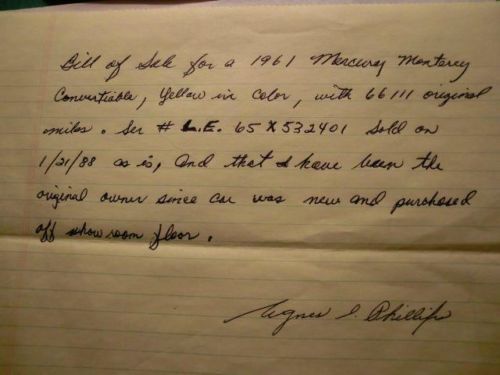 Bill of Sale for a 1961 Mercury Monterey
Convertiable, Yellow in Color, with 66111 original
miles. Ser # L.E. 65X532401 Sold on
1/21/88 as is, and that I have been the
original owner since car was new and purchased
off show room floor.
Agnes I. Phillips